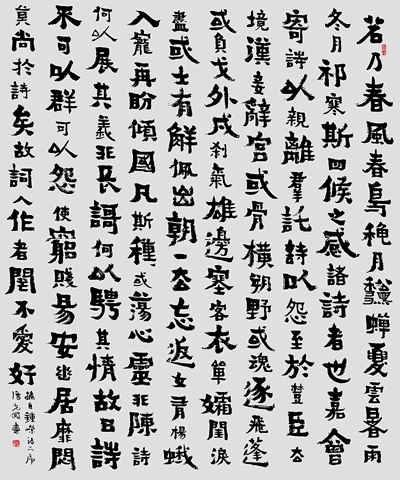 若乃春風春鳥穐月龝蟬夏雲暑雨
冬月祁寒斯四候之感諸詩者也嘉會
寄詩以親離羣託詩以怨至於楚臣去
境漢妾辭宮或骨橫朔野或魂逐飛蓬
或負戈外戍刹氣雄邊塞客衣單孀閨淚
盡或士有解佩出朝一去忘返女有楊蛾
入寵再盼傾國凡斯種或蕩心靈非陳詩
何以展其義非長謌何以騁其情故曰詩
可以群可以怨使窮賤易安幽居靡悶
莫尚於詩矣故詞人作者罔不愛好
摘自鍾嶸詩品序